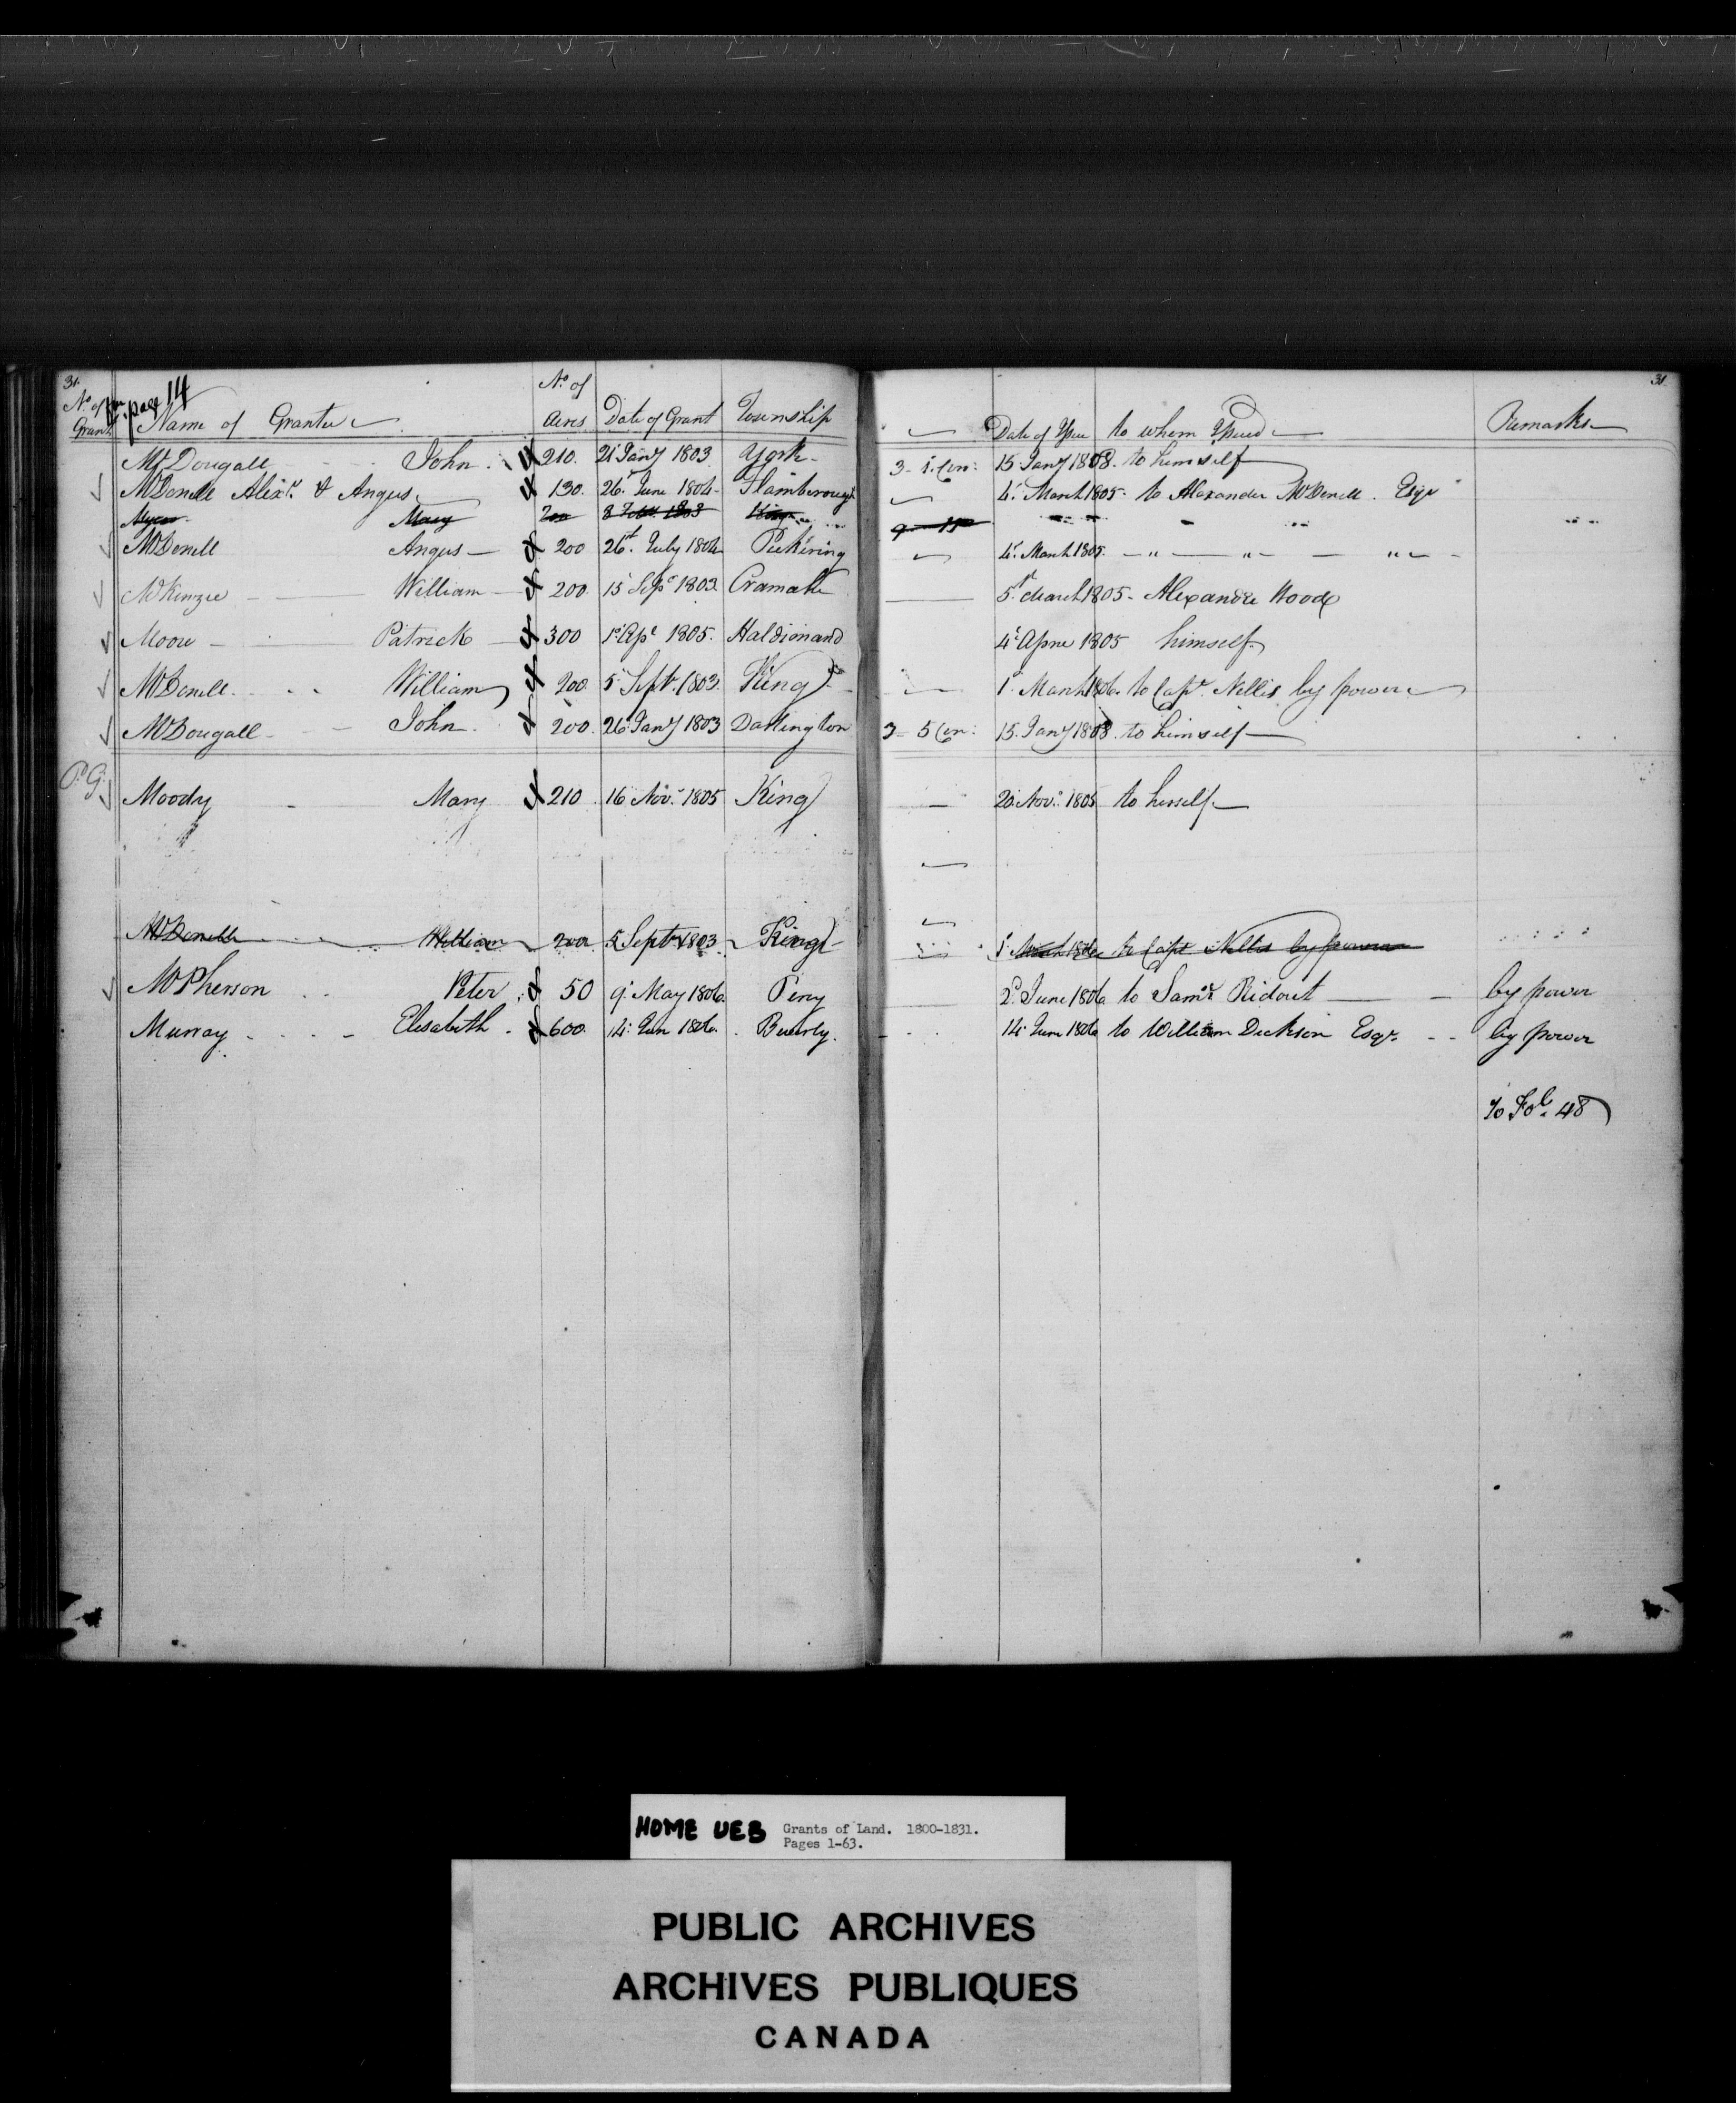 31.
31
No. of
page 14
No. of Grant Name of Grantee Acres Date of Grant Township Date of Issue to whom Issued Remarks
McDougall John 210. 21 Jany 1803 York 3 - 1 Con: 15 Jany 1808. to himself
McDonell Alexr. & Angus 130. 26 June 1804 Flamborough 4 March 1805. to Alexander McDonell. Esqr
Mary 200 8 1803 King
McDonell Angus 200 26t. July 1804 Pickering 4 March 1805. " " "
McKenzie William 200 15 Sepr 1803 Cramahe 5t. March 1805 - Alexander Wood
Moore Patrick 300 1st Apl 1805. Haldimand 4 Aprie 1805 himself
McDonell William 200 5 Sept. 1803 King 1 March 1806. to Capt. Nellis by power
McDougall John 200. 26 Jany 1803 Darlington 3 - 5 Con: 15. Jany 1808. to himself
P.G. Moody Mary 210 16 Nov. 1805 King 20. Nov. 1805 to herself
McDonell William 200 5 Sept 1803 King 1 March 1806 to Capt Nellis by power
McPherson Peter 50 9 May 1806. Percy 2d. June 1806 to Saml. Ridout by power
Murray Elisabeth 600. 14 Jun 1806. Beverly. 14 June 1806 to William Dickson Esqr. by power
To Fol. 48
HOME UEB Grants of Land. 1800-1831.
Pages 1-63.
PUBLIC ARCHIVES
ARCHIVES PUBLIQUES
CANADA